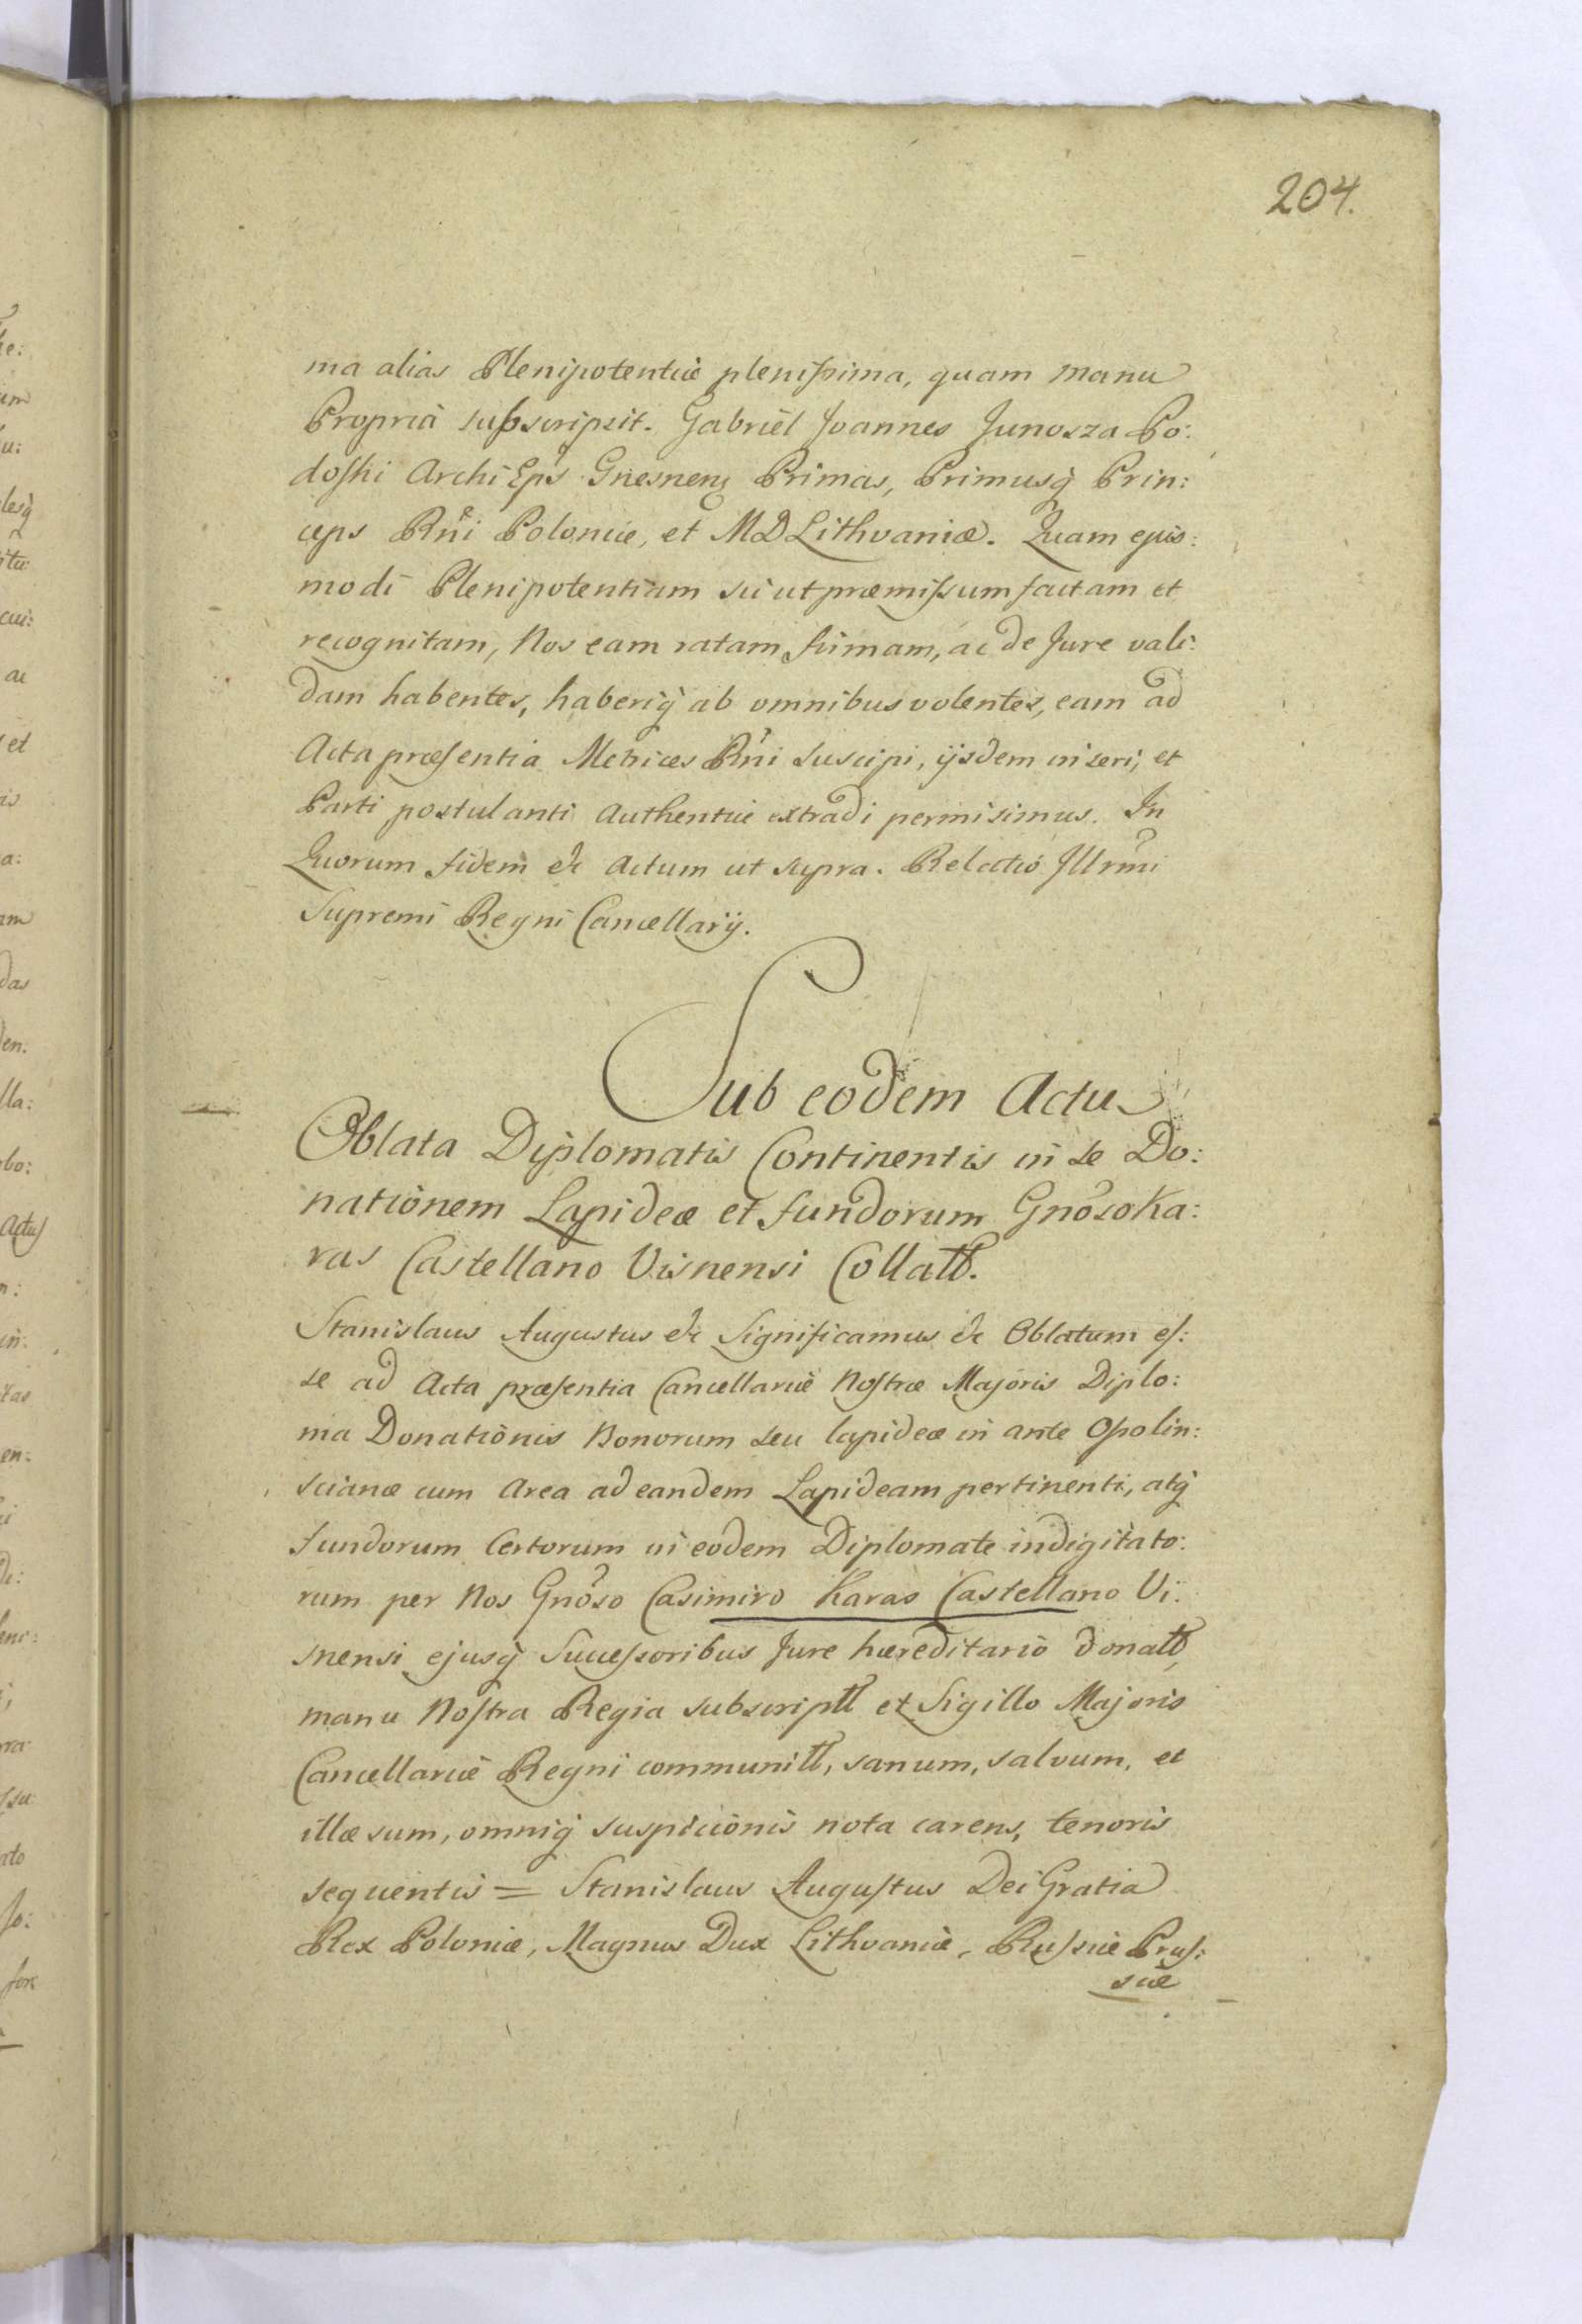 204.
ma alias Plenipotentiæ pleniſsima, quam manu
Propria subscripsit. Gabriel Joannes Junosza Po:
doſki Archi Eps Gnesnen Primas, Primusq̀ Prin:
ceps Rni Poloniæ, et MDLithvaniæ. Quam ejus:
modi Plenipotentiam sic ut præmiſsum factam et
recognitam, Nos eam ratam firmam, ac de Jure vali:
dam habentes, haberiq̀ ab omnibus volentes, eam ad
Acta præſentia Metrices Rni suscipi, ijsdem inseri, et
Parti postulanti Authentice extradi permisimus. In
Quorum fidem &c Actum ut supra. Relatio Jllrmi
Supremi Regni Cancellarij.
Sub eodem Actu
Oblata Diplomatis Continentis in se Do:
nationem Lapideæ et fundorum Gnoso Ka:
ras Castellano Visnensi Collatt.
Stanislaus Augustus &c Significamus &c Oblatum eſ:
se ad Acta præſentia Cancellariæ Noſtræ Majoris Diplo:
ma Donationis Bonorum seu lapideæ in ante Opolin:
scianæ cum Area ad eandem Lapideam pertinenti, atq̀
fundorum Certorum in eodem Diplomate indigitato:
rum per Nos Gnoso Casimiro Karas Castellano Vi:
snensi ejusq̀ Succeſsoribus Jure hæreditario donatt,
manu Noſtra Regia subscriptt et Sigillo Majoris
Cancellariæ Regni communitt, sanum, salvum, et
illæsum, omniq̀ suspicionis nota carens, tenoris
sequentis = Stanislaus Auguſtus Dei Gratia
Rex Poloniæ, Magnus Dux Lithvaniæ, Ruſsiæ Pruſ:
siæ